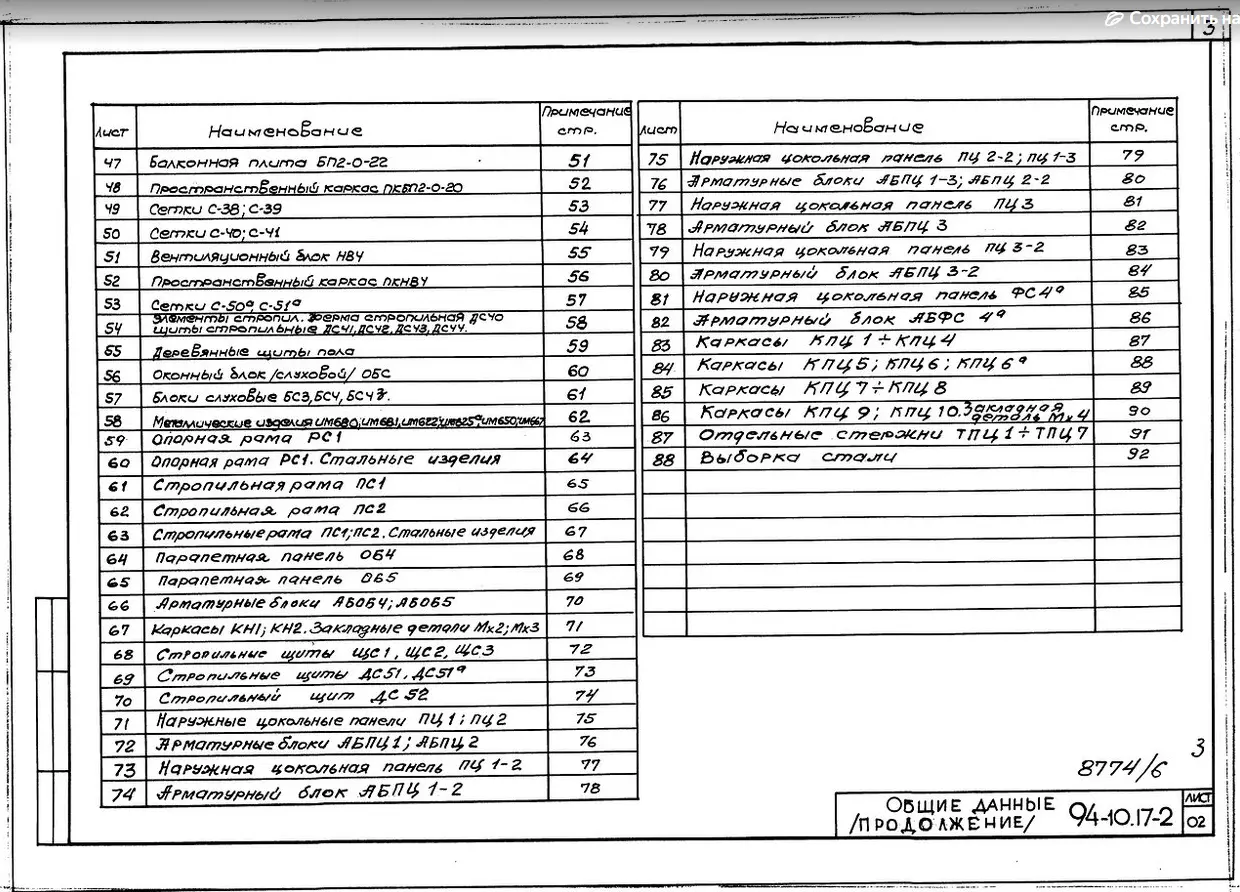 Сохранить на
3
Лист Наименование Примечание стр.
47 Балконная плита БП2-0-22 51
48 Пространственный каркас ПКБП2-0-20 52
49 Сетки С-38; С-39 53
50 Сетки С-40; С-41 54
51 Вентиляционный блок НВЧ 55
52 Пространственный каркас ПКНВЧ 56
53 Сетки С-50а С-51а 57
54 Элементы стропил. Ферма стропильная ДС40
щиты стропильные ДС41, ДС42, ДС43, ДС44. 58
55 Деревянные щиты пола 59
56 Оконный блок /слуховой/ ОБС 60
57 Блоки слуховые БС3, БС4, БС4 61
58 Металлические изделия ИМ680, ИМ681, ИМ622, ИМ625а, ИМ650, ИМ667 62
59 Опорная рама РС1 63
60 Опорная рама РС1. Стальные изделия 64
61 Стропильная рама ПС1 65
62 Стропильная рама ПС2 66
63 Стропильные рама ПС1; ПС2. Стальные изделия 67
64 Парапетная панель ОБ4 68
65 Парапетная панель ОБ5 69
66 Арматурные блоки АБОБ4; АБОБ5 70
67 Каркасы КН1; КН2. Закладные детали Мх2; Мх3 71
68 Стропильные щиты ЩС1, ЩС2, ЩС3 72
69 Стропильные щиты ДС51, ДС51а 73
70 Стропильный щит ДС 52 74
71 Наружные цокольные панели ПЦ1; ПЦ2 75
72 Арматурные блоки АБПЦ1; АБПЦ2 76
73 Наружная цокольная панель ПЦ 1-2 77
74 Арматурный блок АБПЦ 1-2 78
Лист Наименование Примечание стр.
75 Наружная цокольная панель ПЦ 2-2; ПЦ 1-3 79
76 Арматурные блоки АБПЦ 1-3; АБПЦ 2-2 80
77 Наружная цокольная панель ПЦ3 81
78 Арматурный блок АБПЦ 3 82
79 Наружная цокольная панель ПЦ 3-2 83
80 Арматурный блок АБПЦ 3-2 84
81 Наружная цокольная панель ФС4а 85
82 Арматурный блок АБФС 4а 86
83 Каркасы КПЦ 1÷КПЦ4 87
84 Каркасы КПЦ5; КПЦ6; КПЦ6а 88
85 Каркасы КПЦ7÷КПЦ8 89
86 Каркасы КПЦ 9; КПЦ 10. Закладная
деталь Мх4 90
87 Отдельные стержни ТПЦ1÷ТПЦ7 91
88 Выборка стали 92
3
8774/6
Общие данные
/продолжение/
94-10.17-2
Лист
02